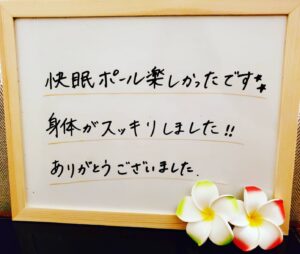 快眠ポール楽しかったです☆☆
身体がスッキリしました!!
ありがとうございました.